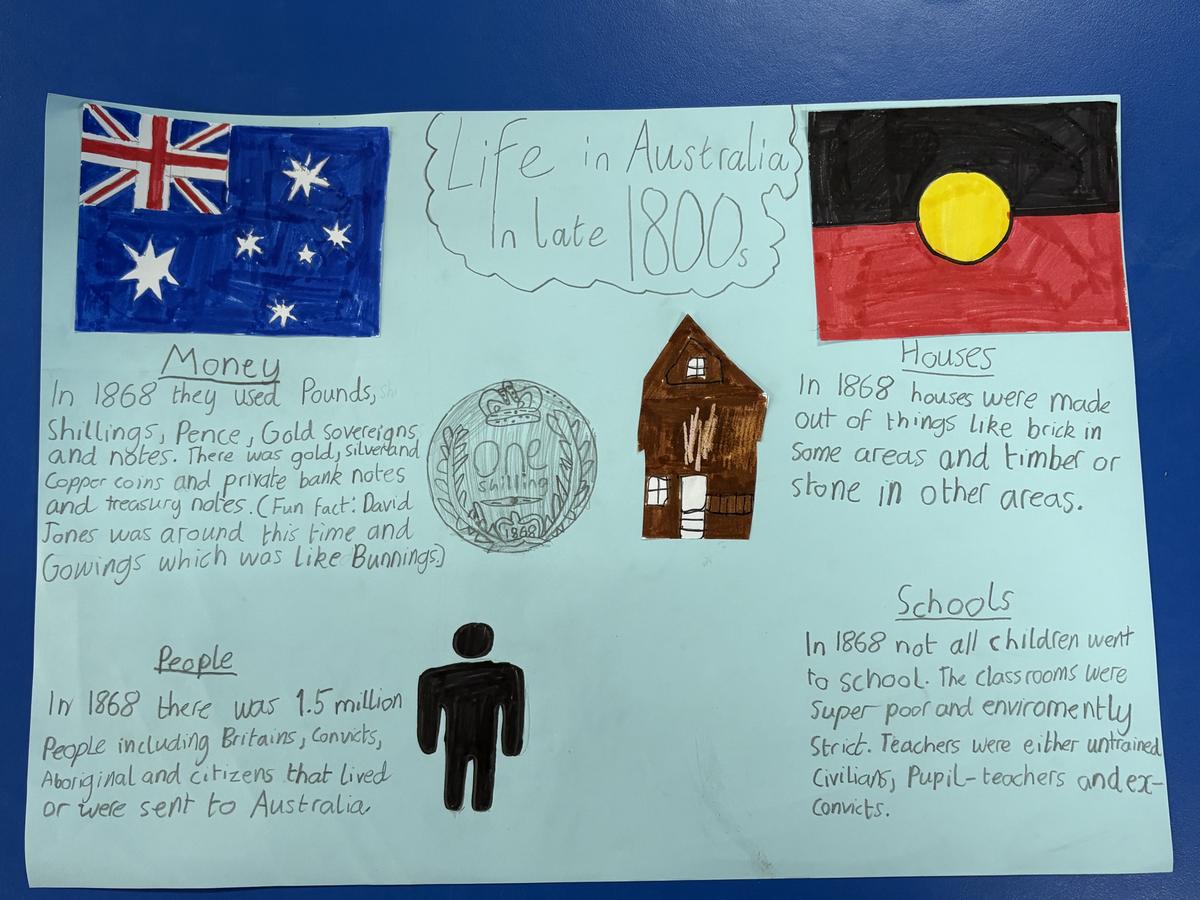 Life in Australia
In late 1800s
Money
In 1868 they used Pounds,
Shillings, Pence, Gold sovereigns
and notes. There was gold, silver and
Copper coins and private bank notes
and treasury notes. (Fun fact: David
Jones was around this time and
Gowings which was like Bunnings)
one
shilling
1868
Houses
In 1868 houses were made
out of things like brick in
some areas and timber or
stone in other areas.
People
In 1868 there was 1.5 million
People including Britains, Convicts,
Aboriginal and citizens that lived
or were sent to Australia.
Schools
In 1868 not all children went
to school. The classrooms were
super poor and enviromently
strict. Teachers were either untrained
Civilians, Pupil-teachers and ex-
Convicts.